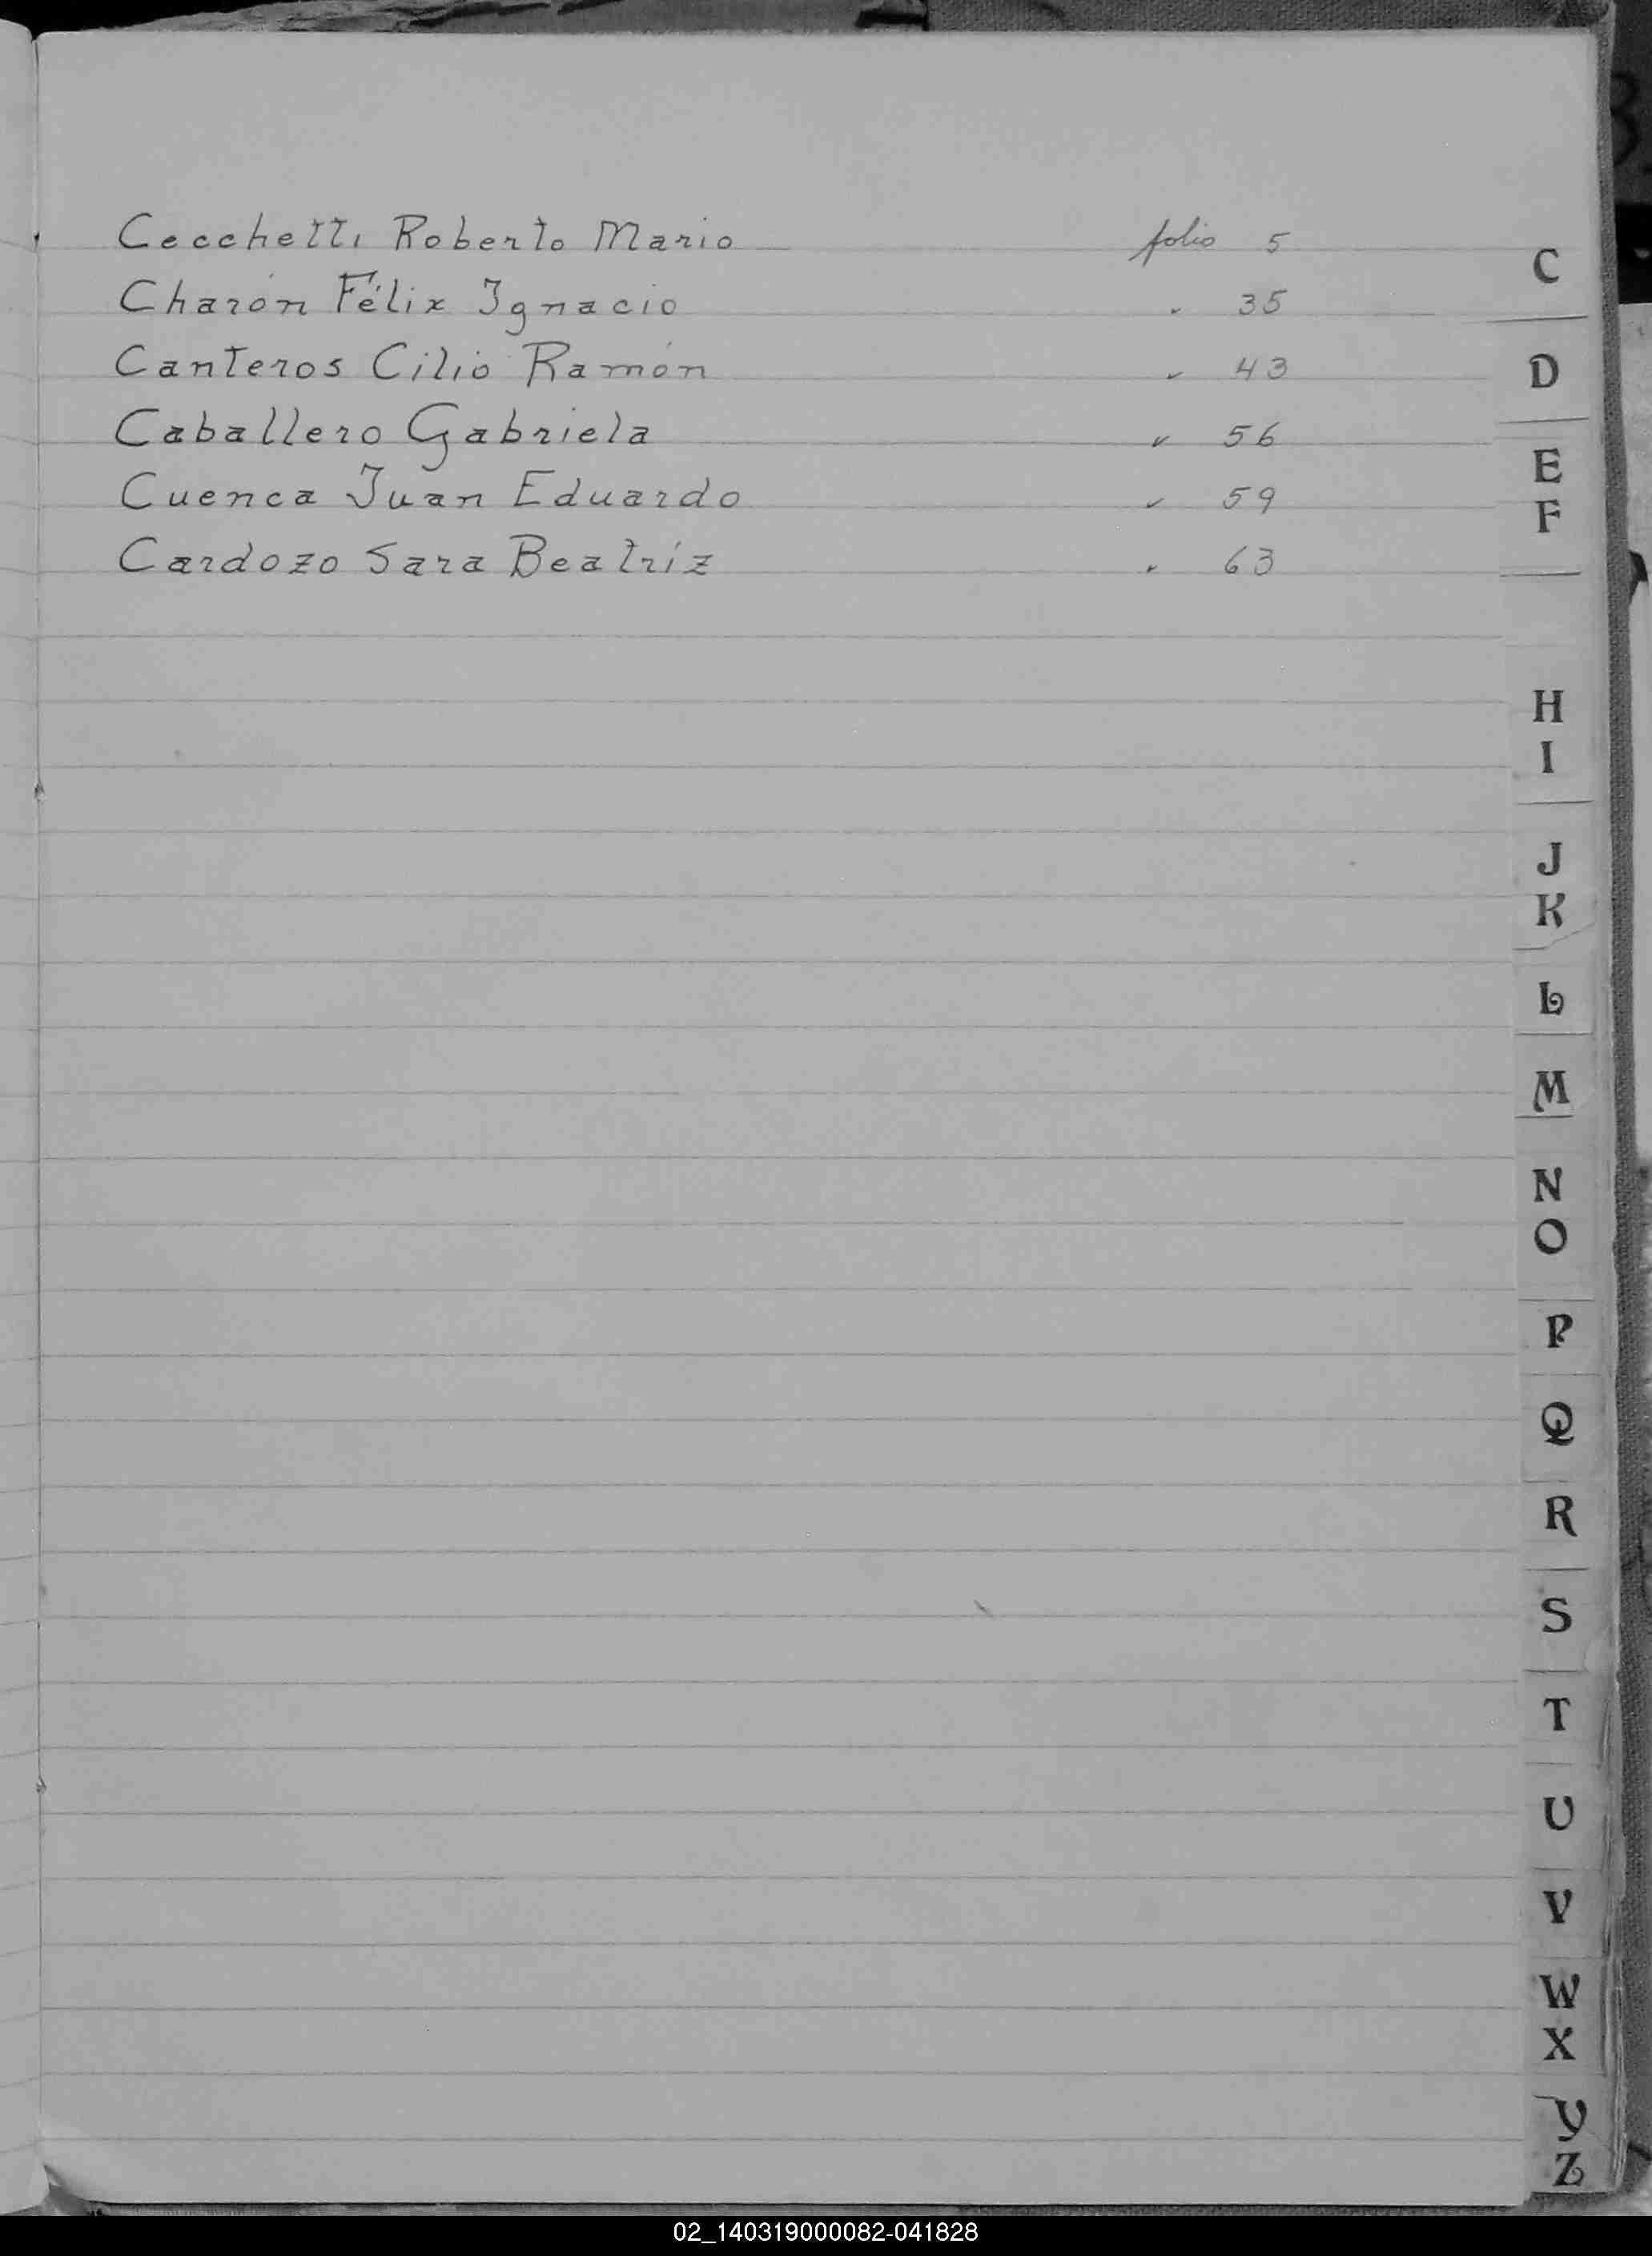 Cecchetti Roberto Mario folio 5
Charón Félix Ignacio " 35
Canteros Cilio Ramón " 43
Caballero Gabriela " 56
Cuenca Juan Eduardo " 59
Cardozo Sara Beatríz " 63
C
D
E
F
H
I
J
K
L
M
N
O
P
Q
R
S
T
U
V
W
X
Y
Z
02_140319000082-041828